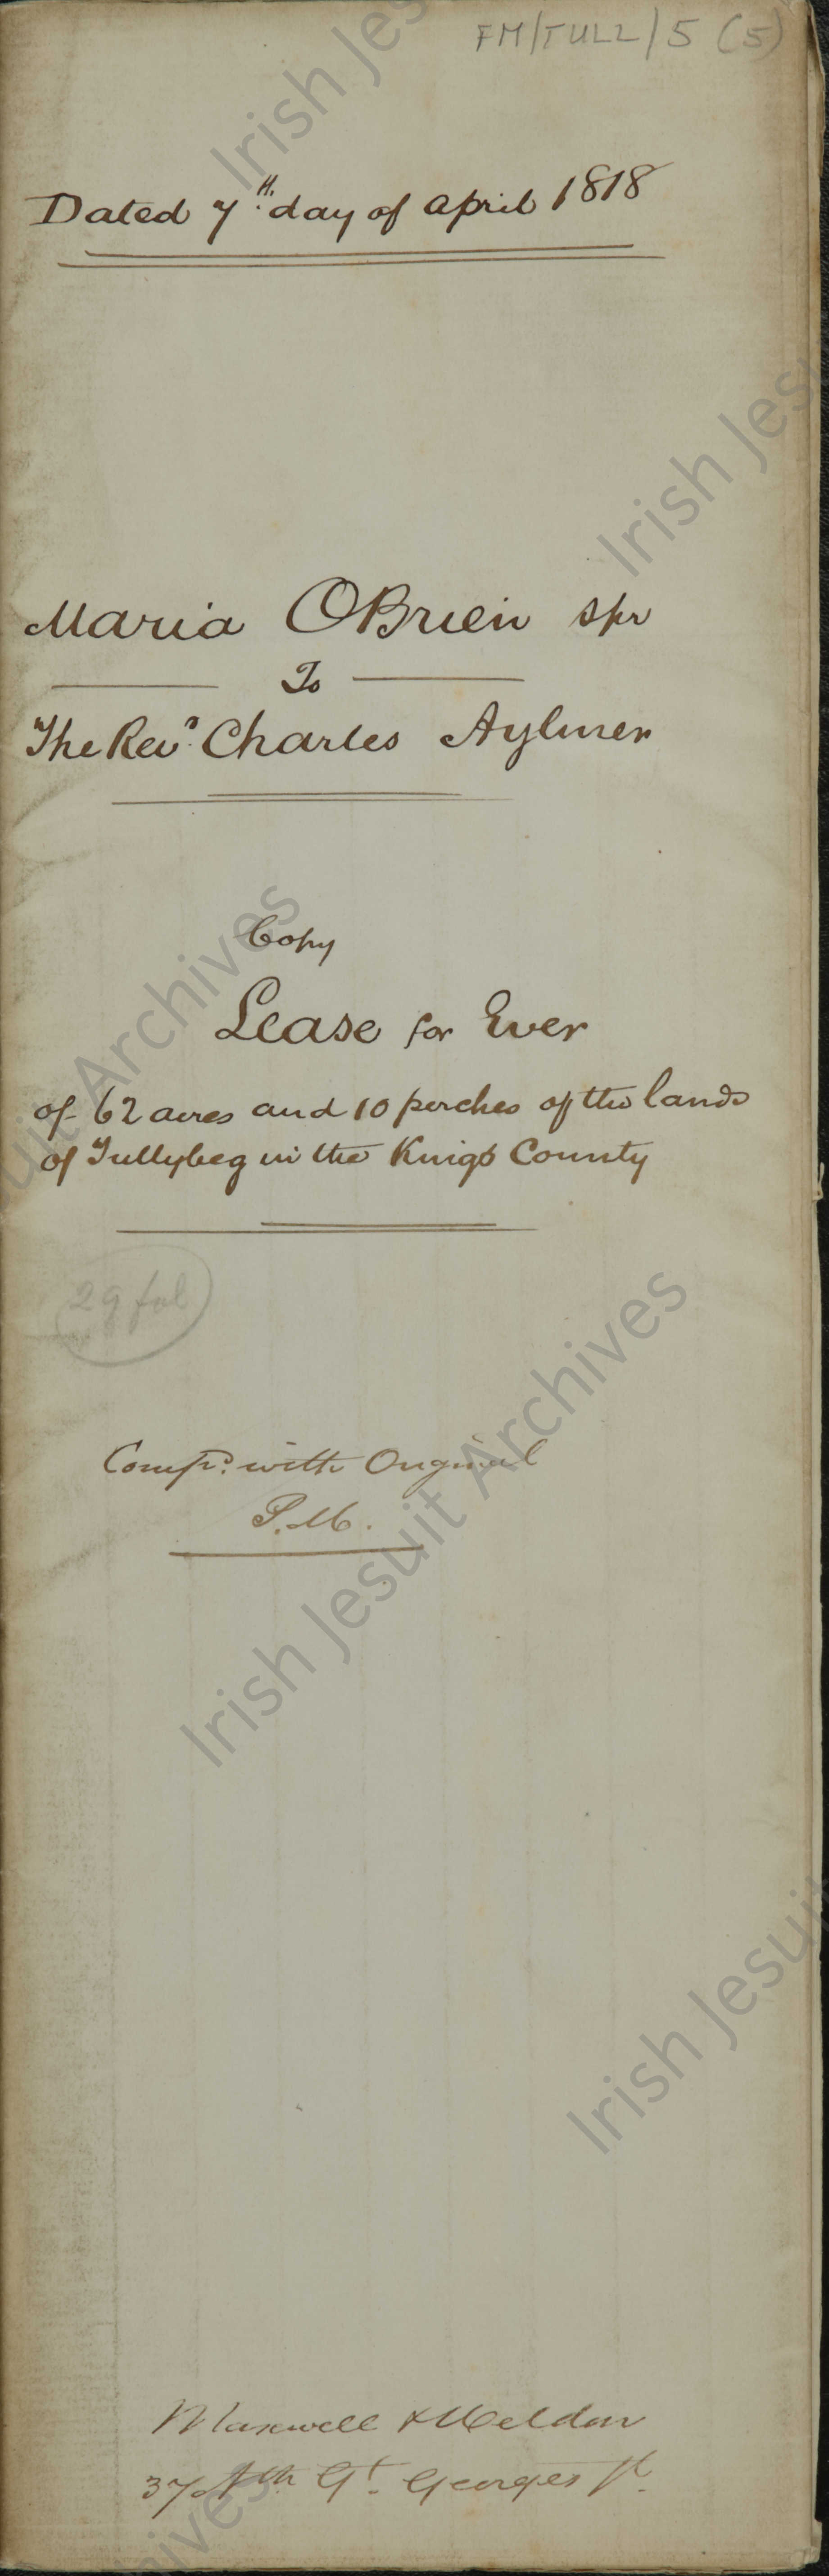 FM/TULL/5 (5)
Dated 7th. day of April 1818
Maria OBrien Spr
To
The Revd. Charles Aylmer
Copy
Lease for Ever
of 62 acres and 10 perches of the lands
of Tullybeg in the Kings County
29 fol
Compd. with Original
P.M.
Maxwell & Weldon
37 Nth Gt. Georges St.
Irish Jesuit Archives